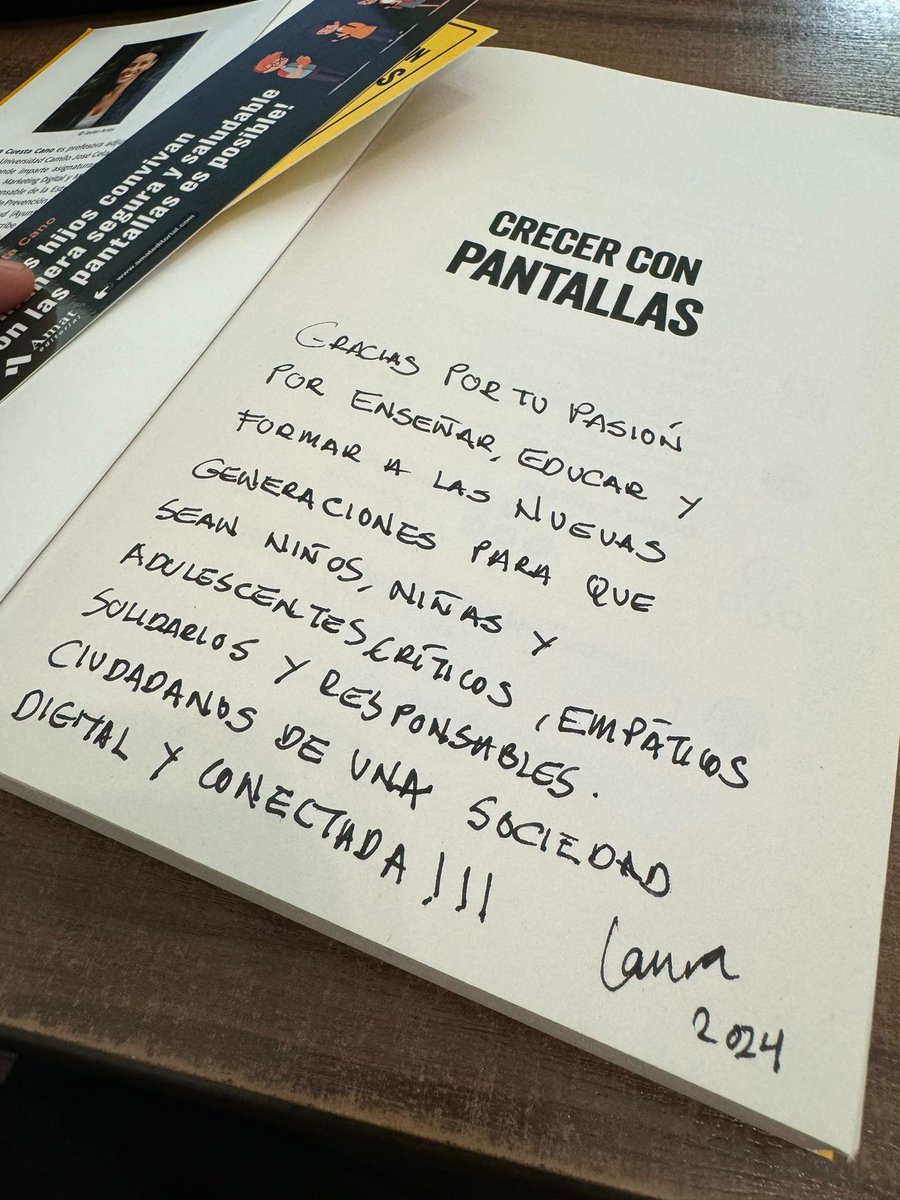 a Cuesta Cano es profesora adju
Universidad Camilo José Cela
nde imparte asignatura
Marketing Digital y M
nsable de la Est
Prevención
ud (Ayun
cribe
sta Cano
s hijos convivan
nera segura y saludable
on las pantallas es posible!
www.amateditorial.com
Amat
editorial
CRECER CON
PANTALLAS
GRACIAS POR TU PASIÓN
POR ENSEÑAR, EDUCAR Y
FORMAR A LAS NUEVAS
GENERACIONES PARA QUE
SEAN NIÑOS, NIÑAS Y
ADOLESCENTES CRÍTICOS, EMPÁTICOS
SOLIDARIOS Y RESPONSABLES.
CIUDADANOS DE UNA SOCIEDAD
DIGITAL Y CONECTADA!!!
Laura
2024